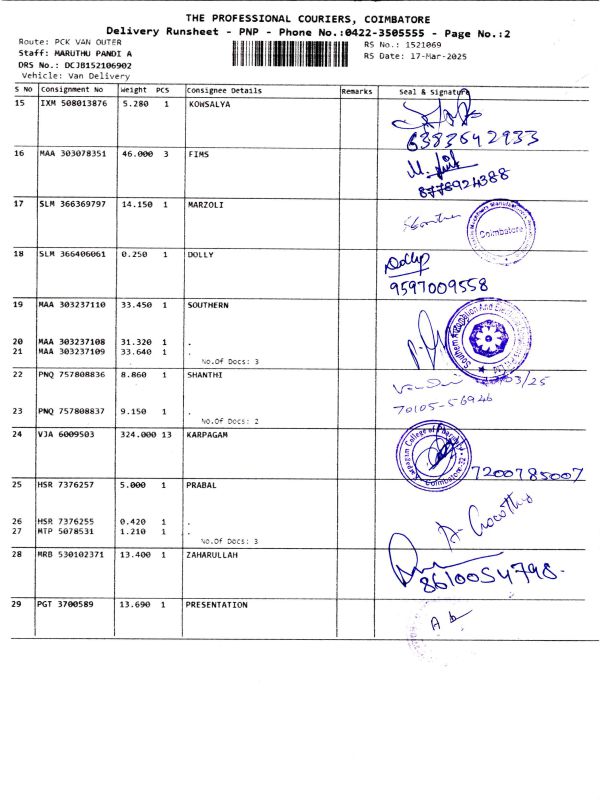 THE PROFESSIONAL COURIERS, COIMBATORE
Delivery Runsheet - PNP - Phone No.:0422-3505555 - Page No.:2
Route: PCK VAN OUTER
RS No.: 1521069
Staff: MARUTHU PANDI A
RS Date: 17-Mar-2025
DRS No.: DCJB152106902
Vehicle: Van Delivery
S No Consignment No Weight PCS Consignee Details Remarks Seal & Signature
15 IXM 508013876 5.280 1 KOWSALYA
6383642933
16 MAA 303078351 46.000 3 FIMS
8778924388
17 SLM 366369797 14.150 1 MARZOLI
Coimbatore
18 SLM 366406061 0.250 1 DOLLY
Dolly
9597009558
19 MAA 303237110 33.450 1 SOUTHERN
20 MAA 303237108 31.320 1 .
21 MAA 303237109 33.640 1 .
No.Of Docs: 3
22 PNQ 757808836 8.860 1 SHANTHI
03/25
70105-56946
23 PNQ 757808837 9.150 1 .
No.Of Docs: 2
24 VJA 6009503 324.000 13 KARPAGAM
Karpagam College of
7200785007
25 HSR 7376257 5.000 1 PRABAL
26 HSR 7376255 0.420 1 .
27 MTP 5078531 1.210 1 .
No.Of Docs: 3
28 MRB 530102371 13.400 1 ZAHARULLAH
8610054798
29 PGT 3700589 13.690 1 PRESENTATION